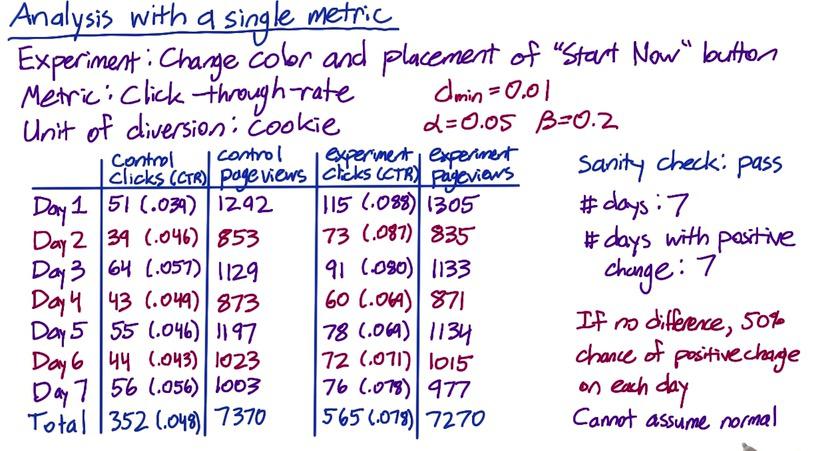 Analysis with a single metric
Experiment: Change color and placement of "Start Now" button
Metric: Click-through-rate dmin = 0.01
Unit of diversion: cookie α=0.05 β=0.2
control clicks (CTR) control pageviews experiment clicks (CTR) experiment pageviews
Day 1 51 (.039) 1292 115 (.088) 1305
Day 2 39 (.046) 853 73 (.087) 835
Day 3 64 (.057) 1129 91 (.080) 1133
Day 4 43 (.049) 873 60 (.069) 871
Day 5 55 (.046) 1197 78 (.069) 1134
Day 6 44 (.043) 1023 72 (.071) 1015
Day 7 56 (.056) 1003 76 (.078) 977
Total 352 (.048) 7370 565 (.078) 7270
Sanity check: pass
# days: 7
# days with positive
change: 7
If no difference, 50%
chance of positive change
on each day
Cannot assume normal